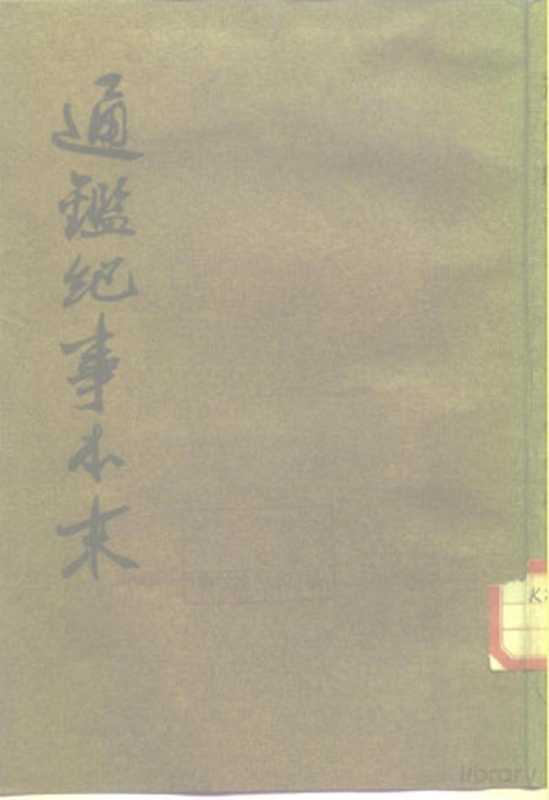 通鑑紀事本末
K
library